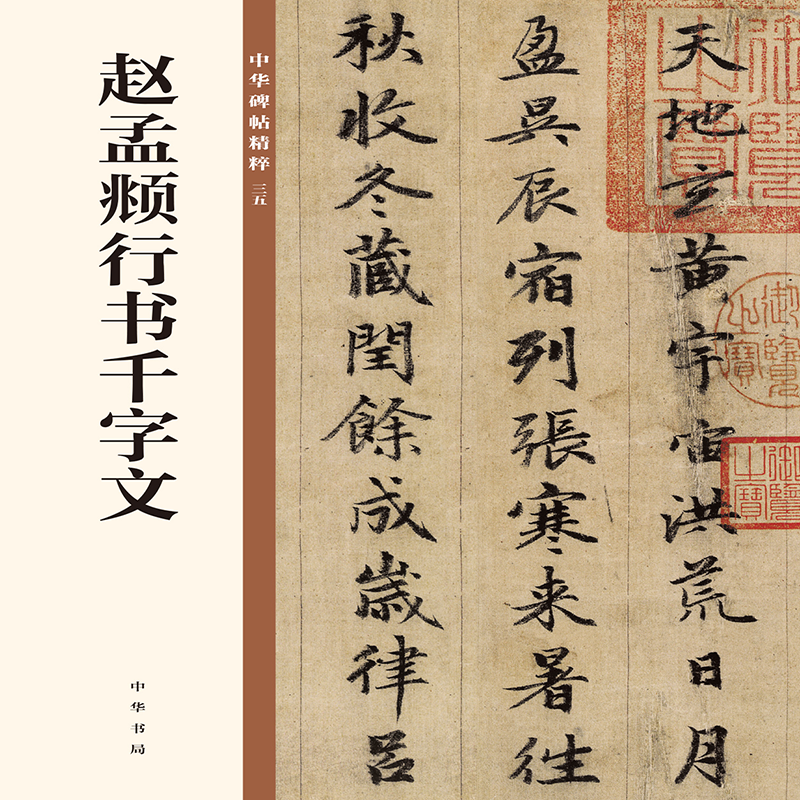 赵孟𫖯行书千字文
中华书局
中华碑帖精粹 三五
天地玄黄宇宙洪荒日月
盈昃辰宿列張寒来暑徃
秋收冬藏閏餘成歲律吕